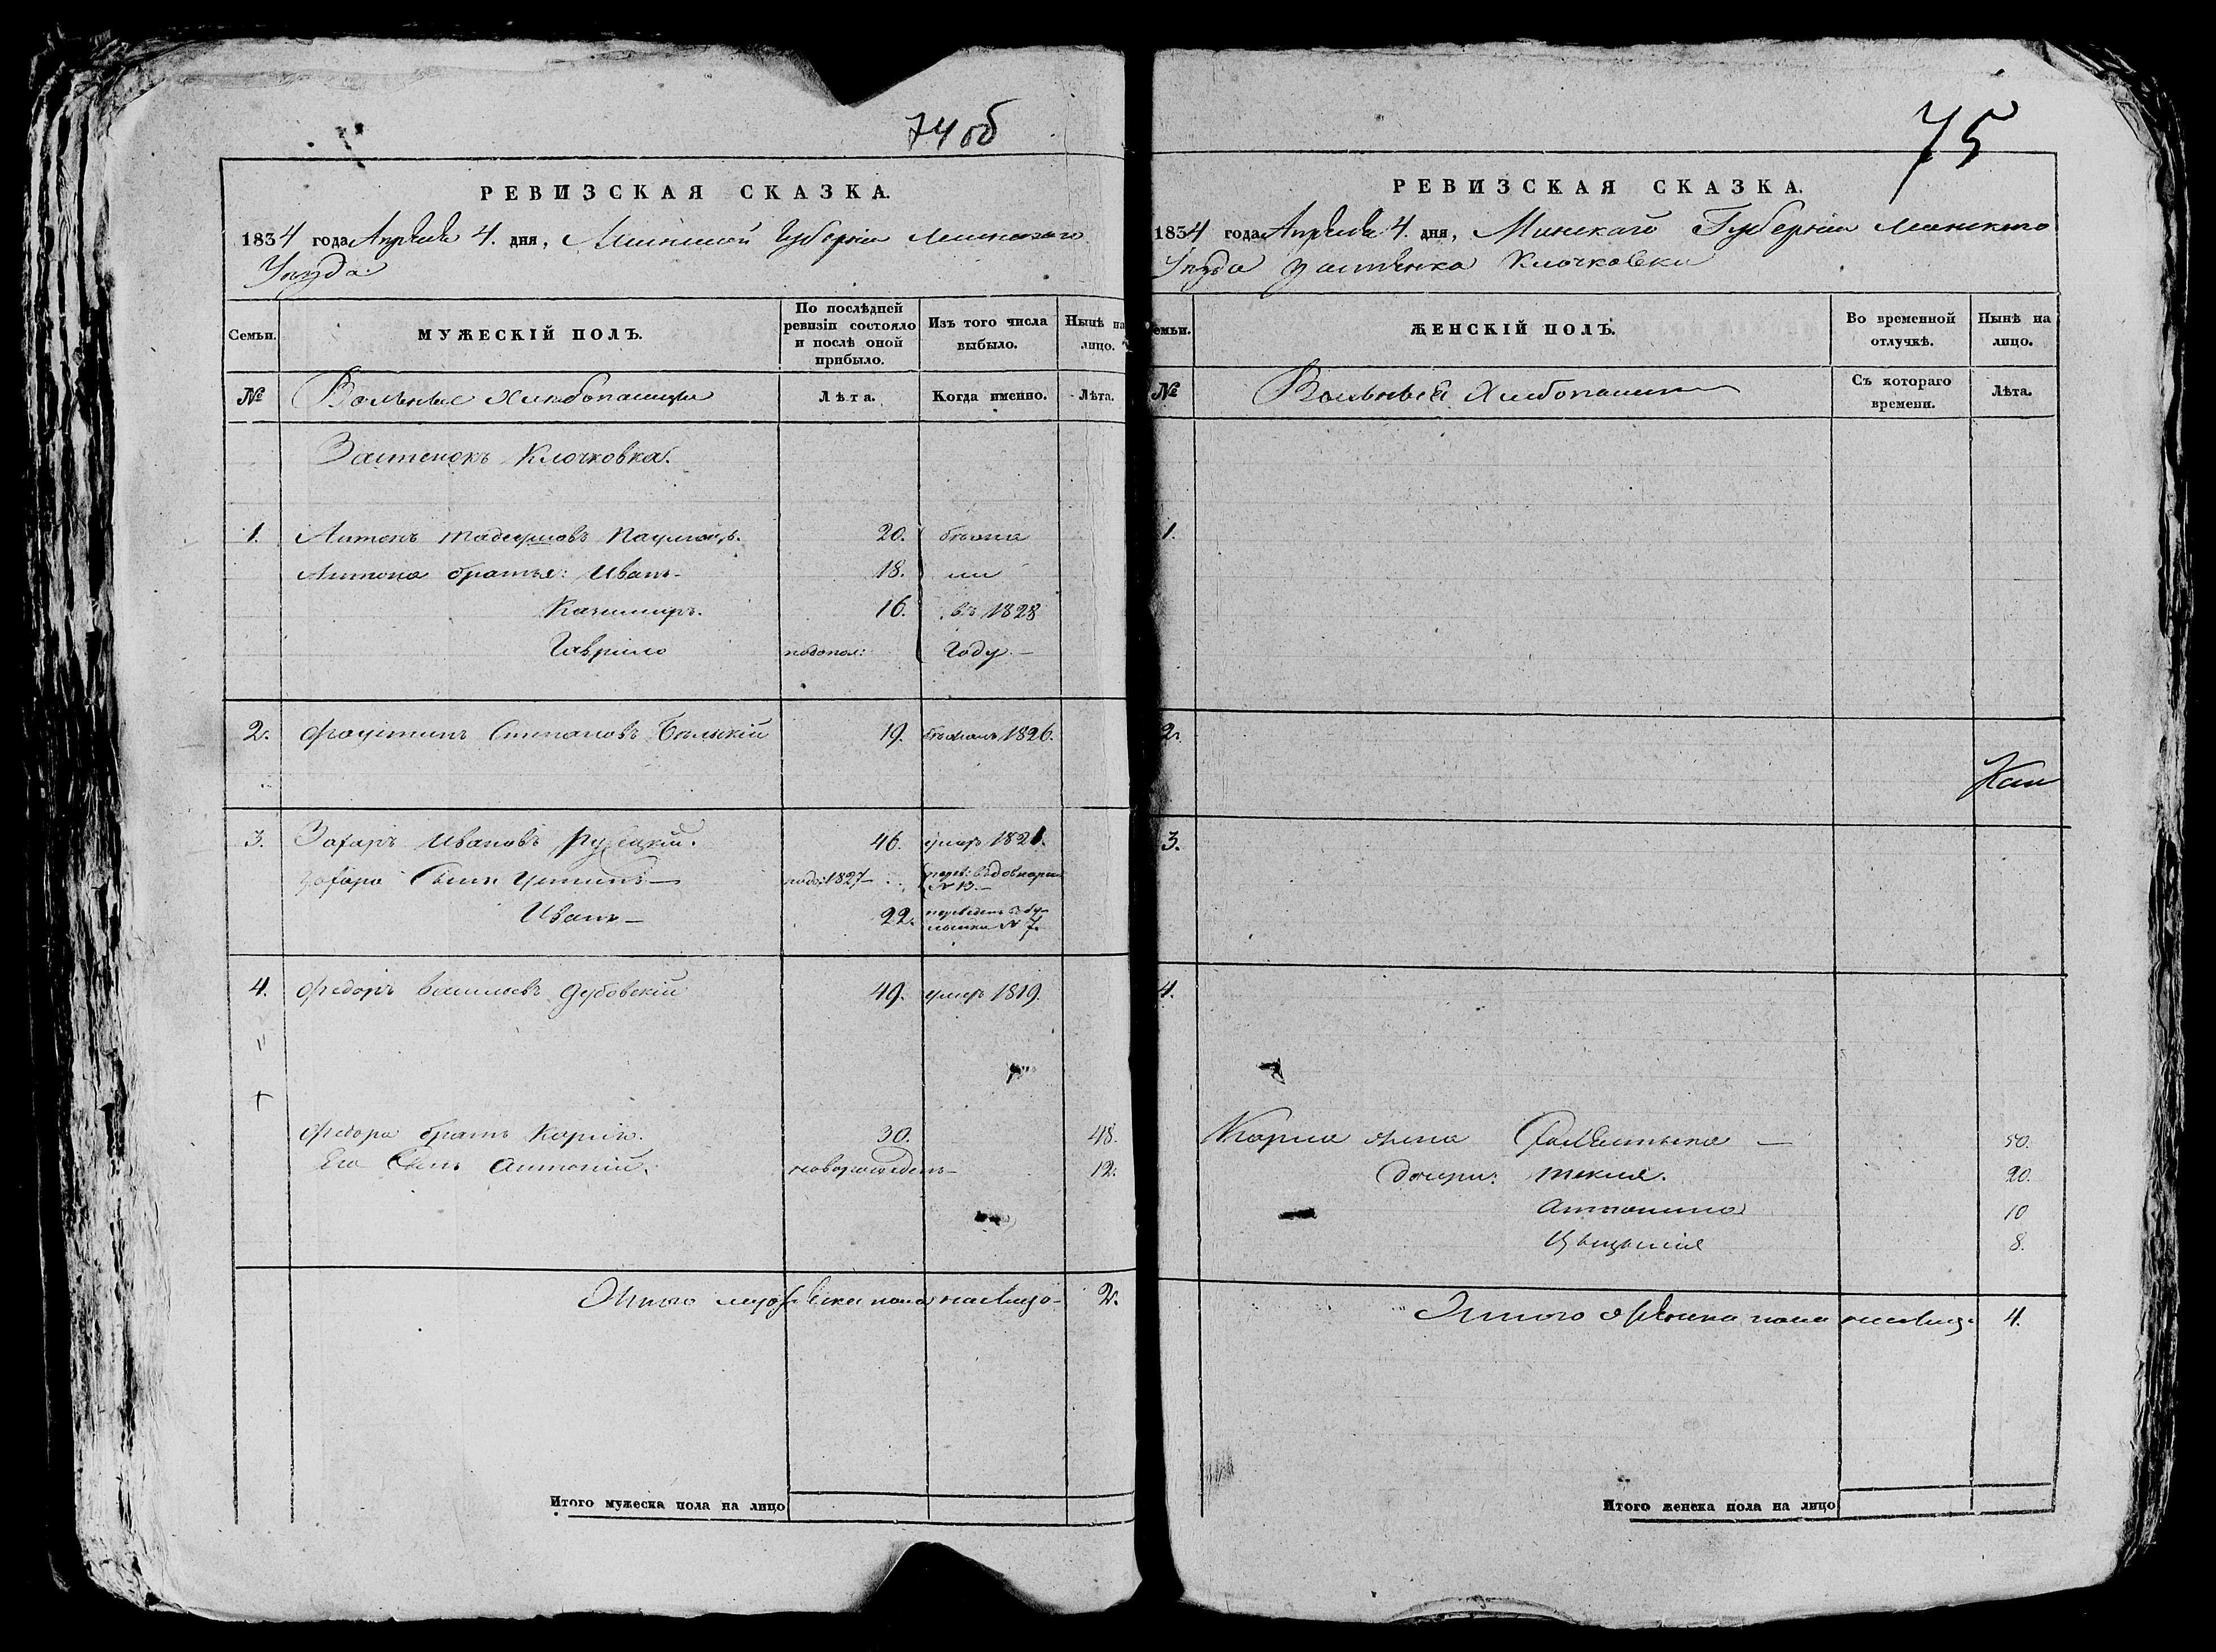 74 об
РЕВИЗСКАЯ СКАЗКА.
1834 года Апреля 4. дня, Минской Губернии Минскаго
Уезда.
Семьи.
МУЖЕСКІЙ ПОЛЪ.
По послѣдней ревизіи состояло и послѣ оной прибыло.
Изъ того числа выбыло.
Нынѣ на лицо.
№
Вольные Хлебопашцы
Лѣта.
Когда именно.
Лѣта.
Застенокъ Клочковка.
1. Антонъ Тадеушовъ 20. бежа
Антона братья: Иванъ 18. ли
Казимиръ. 16. въ 1828
Гаврило Году.
2. Фаустинъ Степановъ Бельскій 19. бежалъ 1826.
3. Захаръ Ивановъ 46. умеръ 1821.
Захара Сынъ Устинъ 1827 № 13.
Иванъ 22. переведенъ № 7.
4. Федоръ Васильевъ Дубовскій 49. умеръ 1819.
Федора братъ Карпъ. 30. 48.
Его Сынъ Антоній. новорожденъ 12.
Итого мужеска пола на лицо 2.
Итого мужеска пола на лицо
75
РЕВИЗСКАЯ СКАЗКА.
1834 года Апреля 4. дня, Минскаго Губерніи Минскаго
Уезда Застенка Клочковки
Семьи.
ЖЕНСКІЙ ПОЛЪ.
Во временной отлучкѣ.
Нынѣ на лицо.
№
Вольные Хлебопашцы
Съ котораго времени.
Лѣта.
1.
2.
3.
4.
Карпа жена 50.
дочери: Текля. 20.
Антонина 10
8.
Итого женска пола на лицо 4.
Итого женска пола на лицо